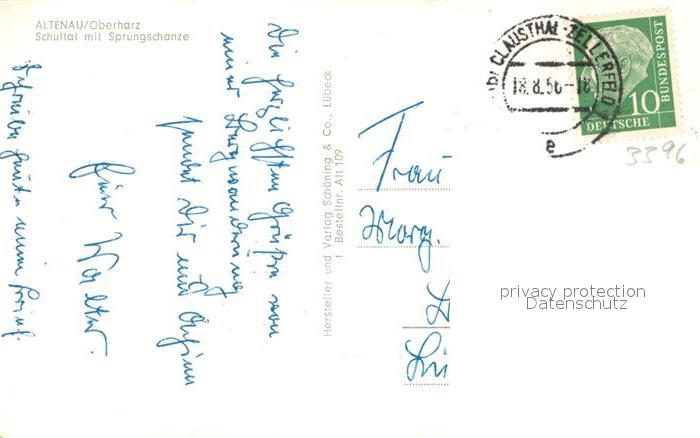 ALTENAU/Oberharz
Schultal mit Sprungschanze
Die herzlichsten Grüße von
meiner Harzwanderung
sendet Dir und
Euer Walter.
Schreibe heute einen Brief.
Hersteller und Verlag Schöning & Co., Lübeck
1 Bestellnr. Alt 109
Frau
Marg.
CLAUSTHAL-ZELLERFELD
18.8.56-18
e
10
DEUTSCHE
BUNDESPOST
3396
privacy protection
Datenschutz